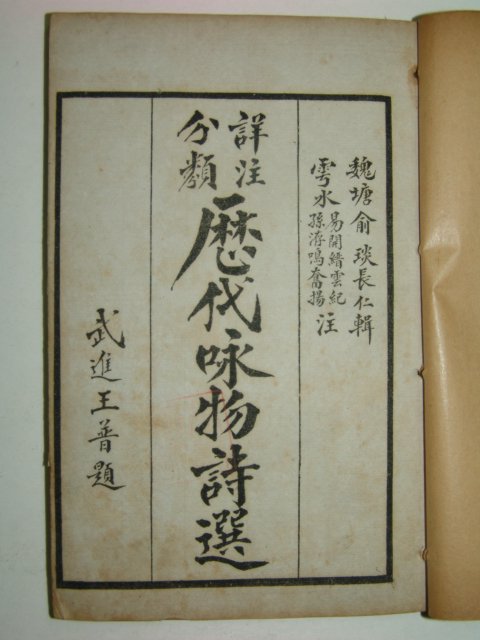 魏塘俞琰長仁輯
雩水易開縉雲紀孫洊鳴奮揚注
詳注
分類
歷代咏物詩選
武進王普題